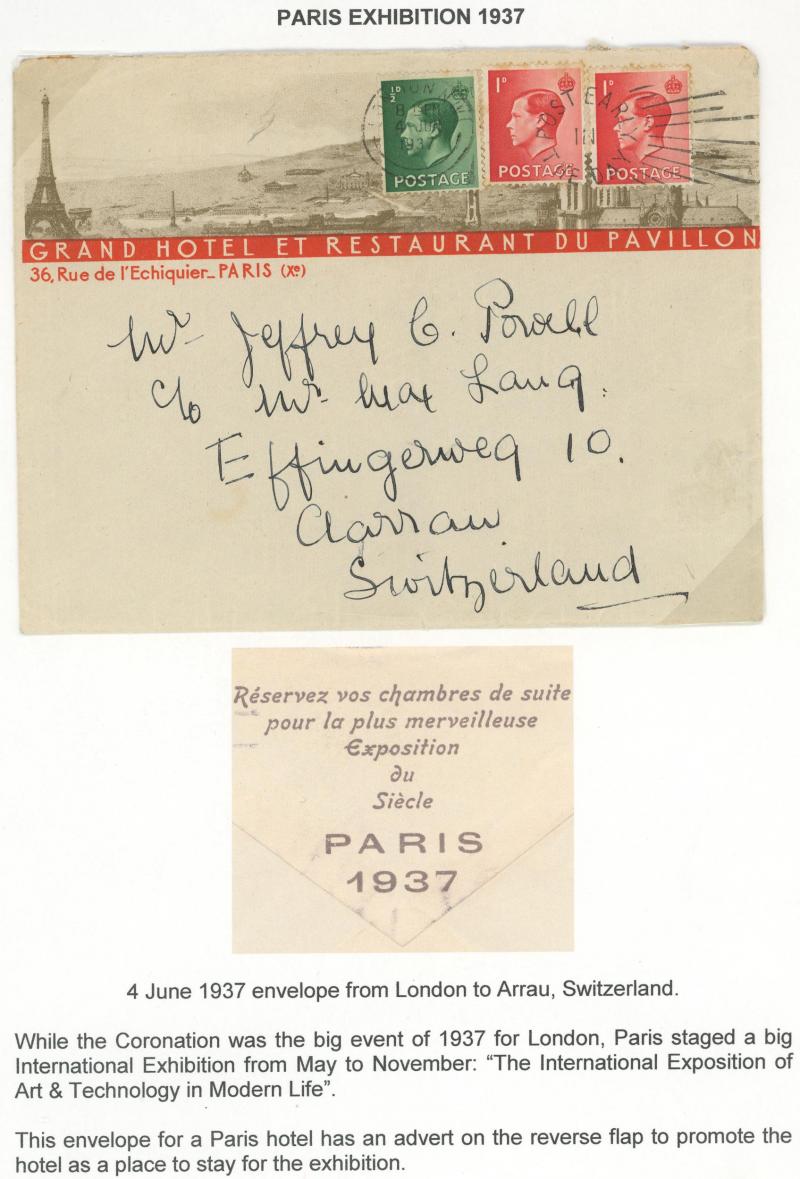 PARIS EXHIBITION 1937
½D
POSTAGE
1D
POSTAGE
1D
POSTAGE
4 JUN
1937
POST EARLY
IN
GRAND HOTEL ET RESTAURANT DU PAVILLON
36, Rue de l'Echiquier_ PARIS (Xe)
Mr Jeffrey C. Powell
c/o Mr. Max Lang.
Effingerweg 10.
Aarrau
Switzerland
Réservez vos chambres de suite
pour la plus merveilleuse
Exposition
du
Siècle
PARIS
1937
4 June 1937 envelope from London to Arrau, Switzerland.
While the Coronation was the big event of 1937 for London, Paris staged a big
International Exhibition from May to November: “The International Exposition of
Art & Technology in Modern Life”.
This envelope for a Paris hotel has an advert on the reverse flap to promote the
hotel as a place to stay for the exhibition.